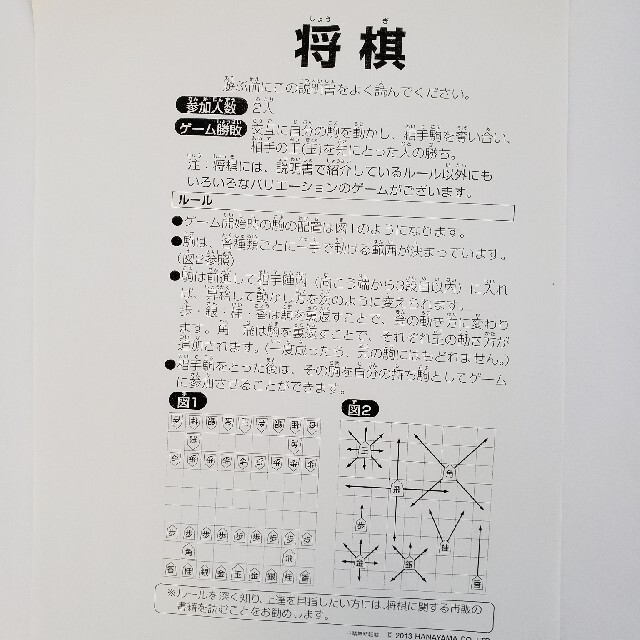 将棋
遊ぶ前にこの説明書をよく読んでください。
参加人数 2人
ゲーム勝敗 交互に自分の駒を動かし、相手駒を奪い合い、
相手の王(玉)を先にとった人の勝ち。
注：将棋には、説明書で紹介しているルール以外にも
いろいろなバリエーションのゲームがございます。
ルール
●ゲーム開始時の駒の配置は図1のようになります。
●駒は、各種類ごとに一手で動ける範囲が決まっています。
(図2参照)
●駒は前進して相手陣内(向こう端から3段目以内)に入れ
ば、昇格して動かし方を次のように変えられます。
歩・銀・桂・香は駒を裏返すことで、金の動き方に変わり
ます。角・飛は駒を裏返すことで、それぞれ元の動き方が
追加されます。(一度成ったら、元の駒にはもどれません。)
●相手駒をとった後は、その駒を自分の持ち駒としてゲーム
に参加させることができます。
図1
図2
歩 歩 歩 歩 歩 歩 歩 歩 歩
角 飛
香 桂 銀 金 王 金 銀 桂 香
王
角
飛
歩
桂
金
銀
香
※ルールを深く知り、上達を目指したい方には、将棋に関する市販の
書籍を読むことをお勧めします。
© 2013 HANAYAMA CO., LTD.